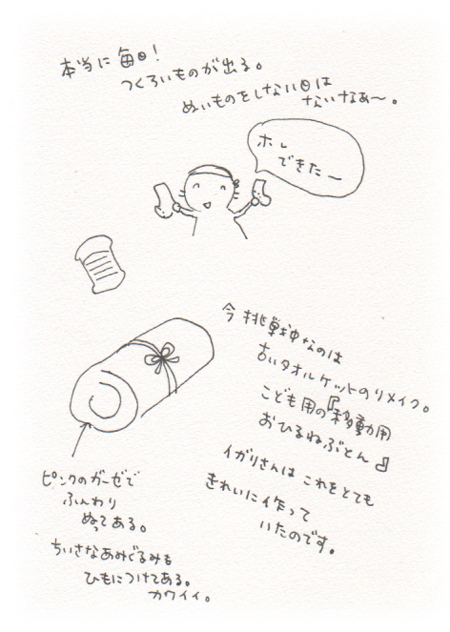 本当に毎日！
つくろいものが出る。
ぬいものをしない日は
ないなあ〜。
ホレ
できた〜
今挑戦中なのは
古いタオルケットのリメイク。
こども用の『移動用
おひるねぶとん』
イガリさんは これをとても
きれいに作って
いたのです。
ピンクのガーゼで
ふんわり
ぬってある。
ちいさなあみぐるみも
ひもにつけてある。
カワイイ。